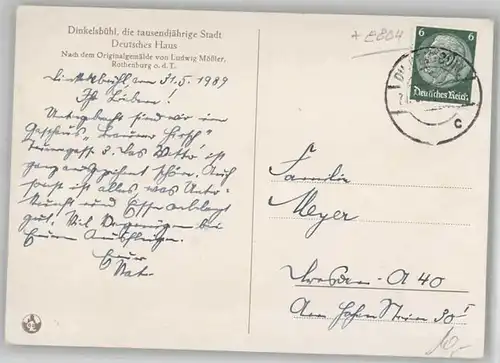 Dinkelsbühl, die tausendjährige Stadt
Deutsches Haus
Nach dem Originalgemälde von Ludwig Mößler,
Rothenburg o. d. T.
Dinkelsbühl am 31.5.1939
Ihr Lieben!
Untergebracht sind wir im
Gasthaus "Brauner Hirsch"
3. Das Wetter ist
ganz ausgezeichnet schön. Auch
sonst ist alles was Unter-
kunft und Essen anbelangt
gut. Viel Vergnügen bei
Euren Ausflügen.
Euer
Vater
6 6
Deutsches Reich
c
Familie
Meyer
Dresden-A 40
Am Hohen Stein 30 I
10,-